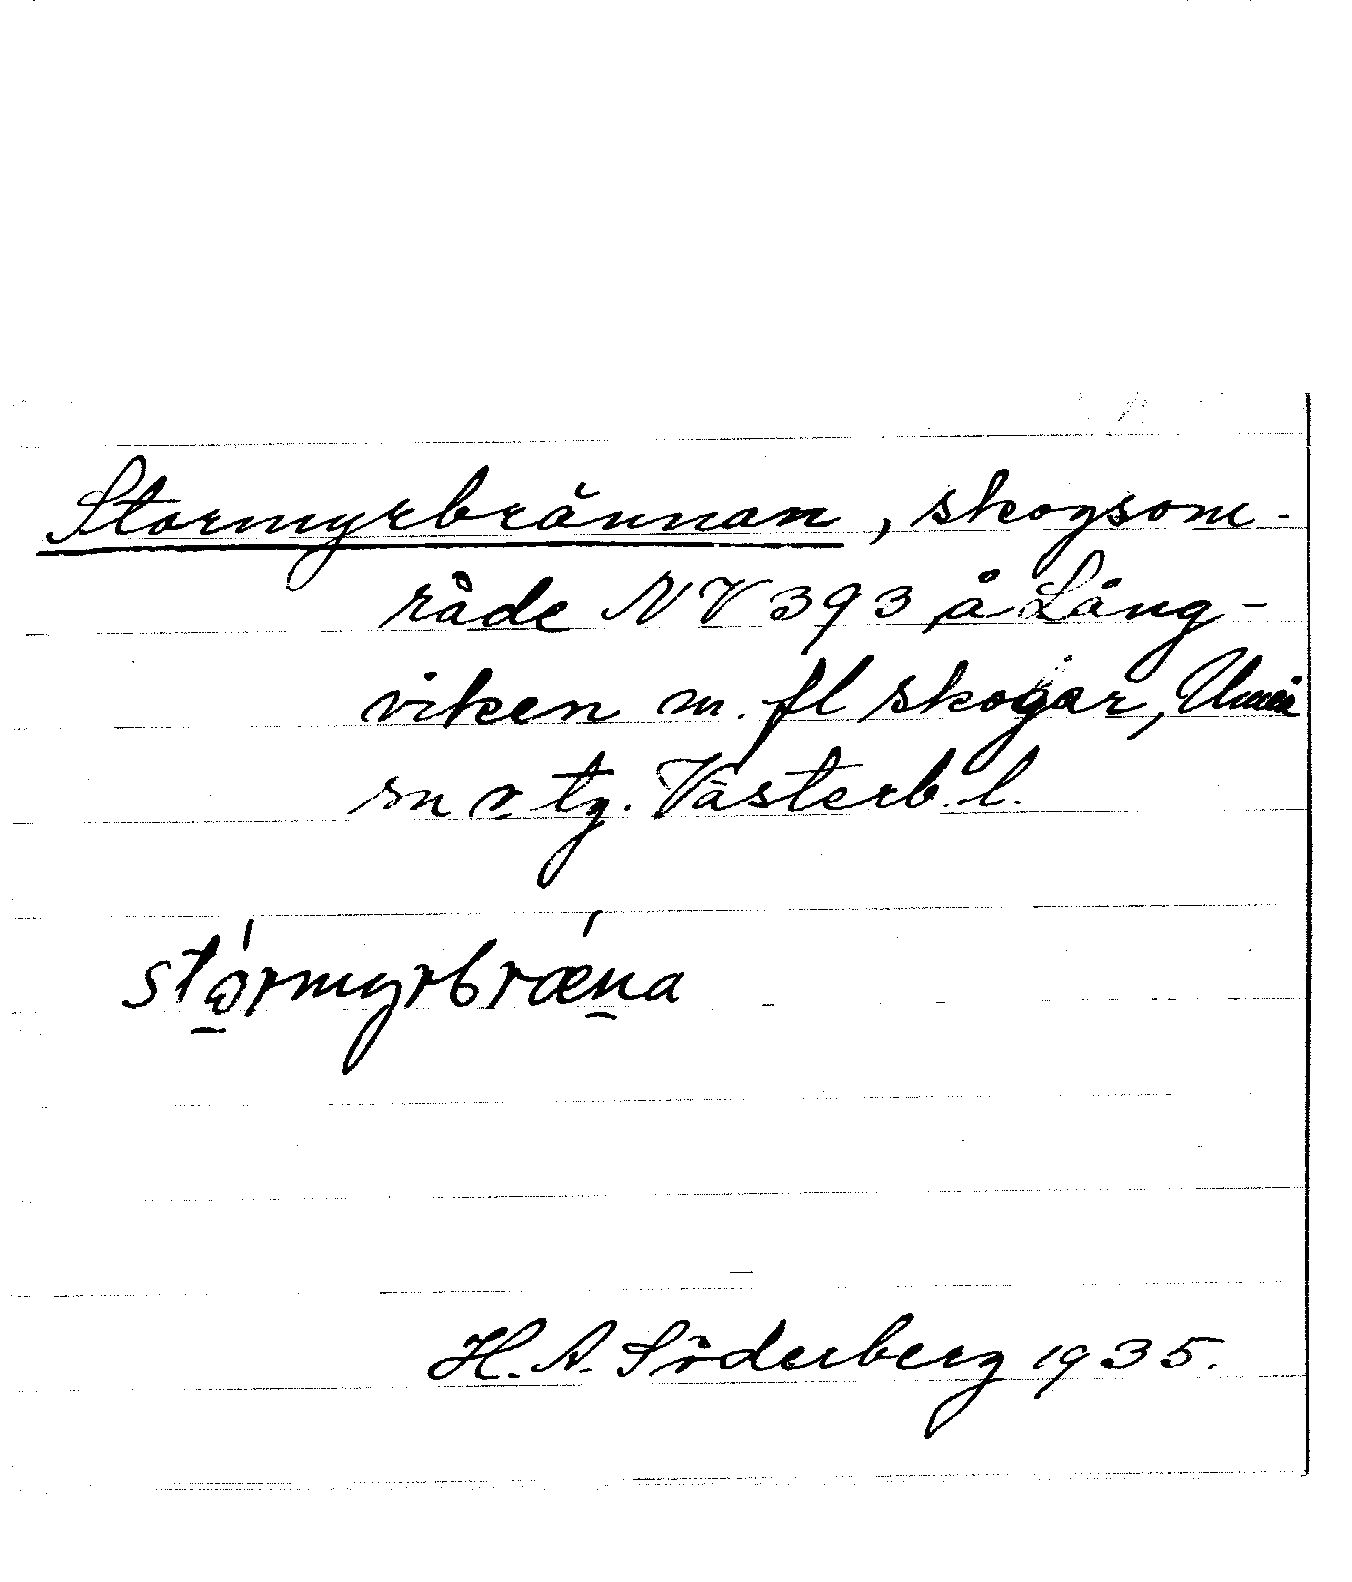 Stormyrbrännan, skogsom-
råde NV 393 å Lång-
viken m. fl skogar, Umeå
sn o. tg. Västerb. l.
stɷ́rmyrbrǽn̲a
H. A. Söderberg 1935.